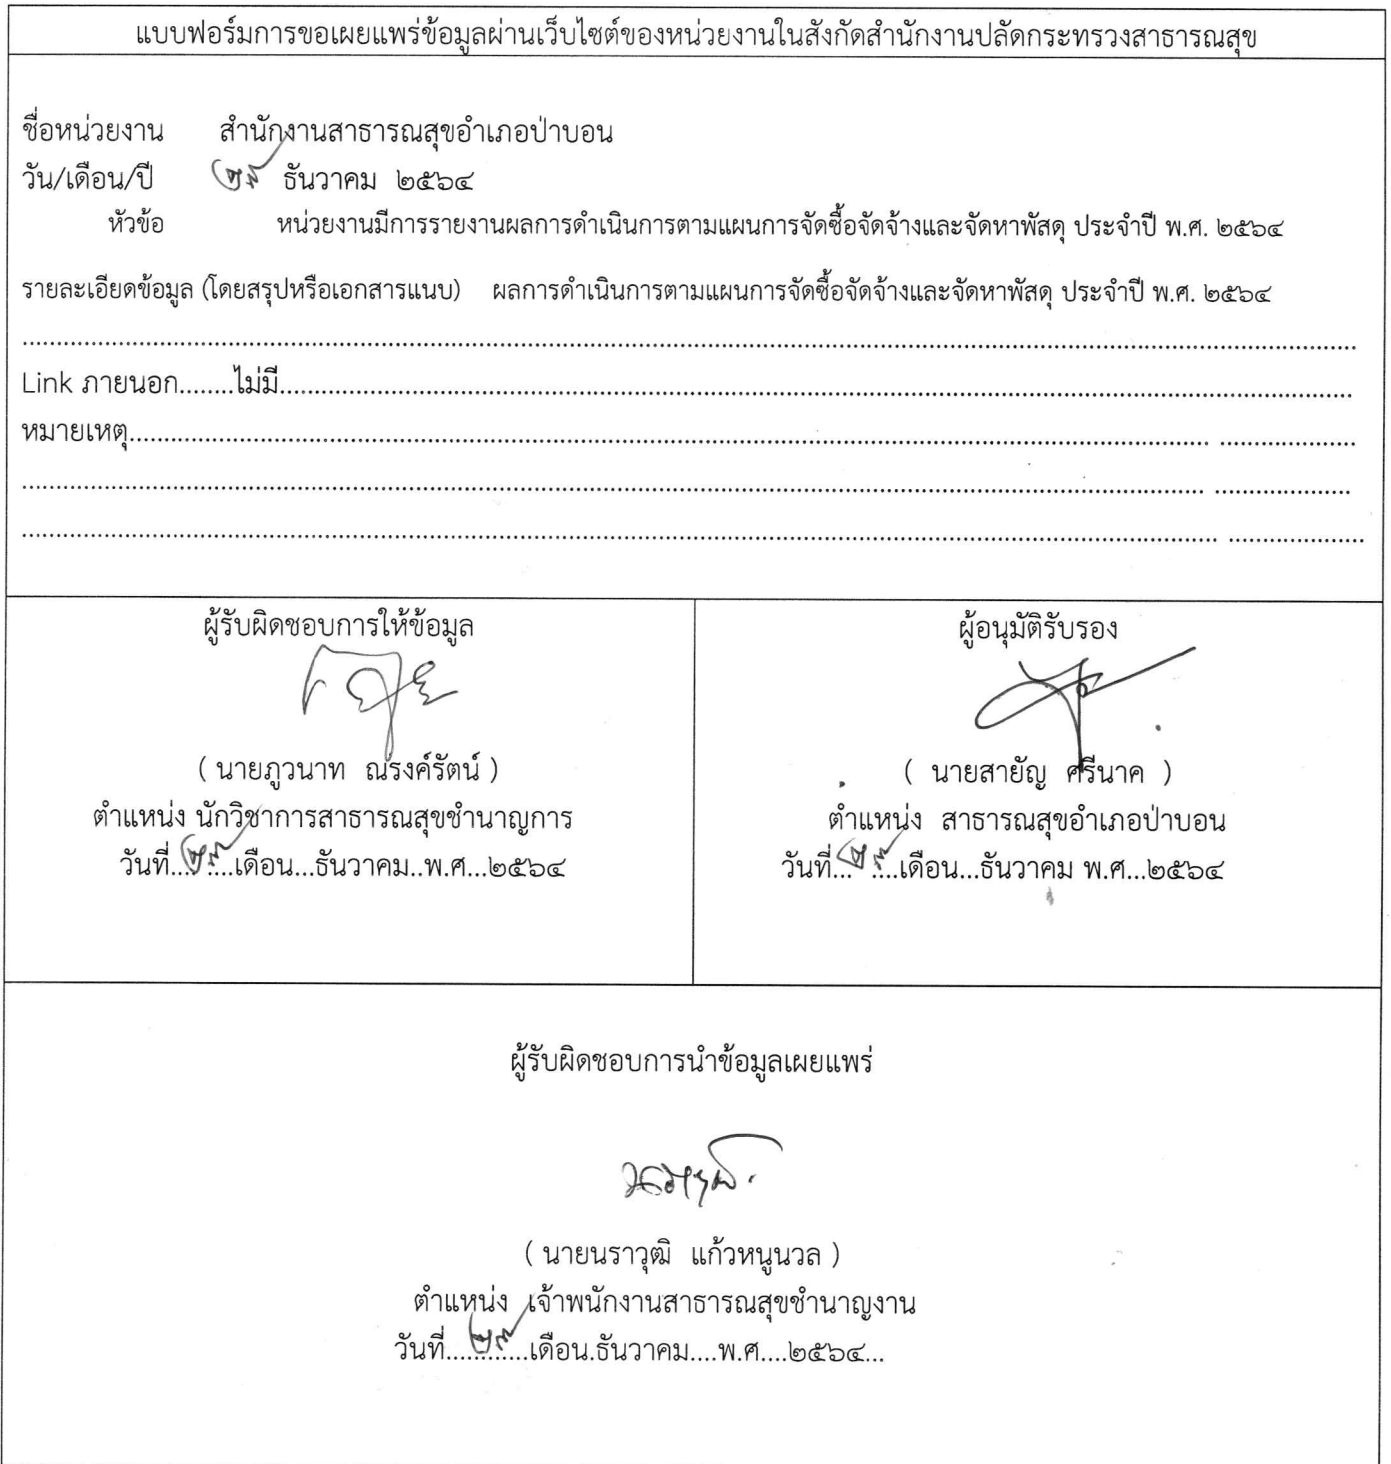 แบบฟอร์มการขอเผยแพร่ข้อมูลผ่านเว็บไซต์ของหน่วยงานในสังกัดสำนักงานปลัดกระทรวงสาธารณสุข
ชื่อหน่วยงาน สำนักงานสาธารณสุขอำเภอป่าบอน
วัน/เดือน/ปี ๒๙ ธันวาคม ๒๕๖๔
หัวข้อ หน่วยงานมีการรายงานผลการดำเนินการตามแผนการจัดซื้อจัดจ้างและจัดหาพัสดุ ประจำปี พ.ศ. ๒๕๖๔
รายละเอียดข้อมูล (โดยสรุปหรือเอกสารแนบ) ผลการดำเนินการตามแผนการจัดซื้อจัดจ้างและจัดหาพัสดุ ประจำปี พ.ศ. ๒๕๖๔
Link ภายนอก........ไม่มี........
หมายเหตุ........
ผู้รับผิดชอบการให้ข้อมูล
( นายภูวนาท ณรงค์รัตน์ )
ตำแหน่ง นักวิชาการสาธารณสุขชำนาญการ
วันที่...๒๙...เดือน...ธันวาคม..พ.ศ...๒๕๖๔
ผู้อนุมัติรับรอง
( นายสายัญ ศรีนาค )
ตำแหน่ง สาธารณสุขอำเภอป่าบอน
วันที่...๒๙...เดือน...ธันวาคม พ.ศ...๒๕๖๔
ผู้รับผิดชอบการนำข้อมูลเผยแพร่
( นายนราวุฒิ แก้วหนูนวล )
ตำแหน่ง เจ้าพนักงานสาธารณสุขชำนาญงาน
วันที่....๒๙....เดือน.ธันวาคม....พ.ศ....๒๕๖๔...